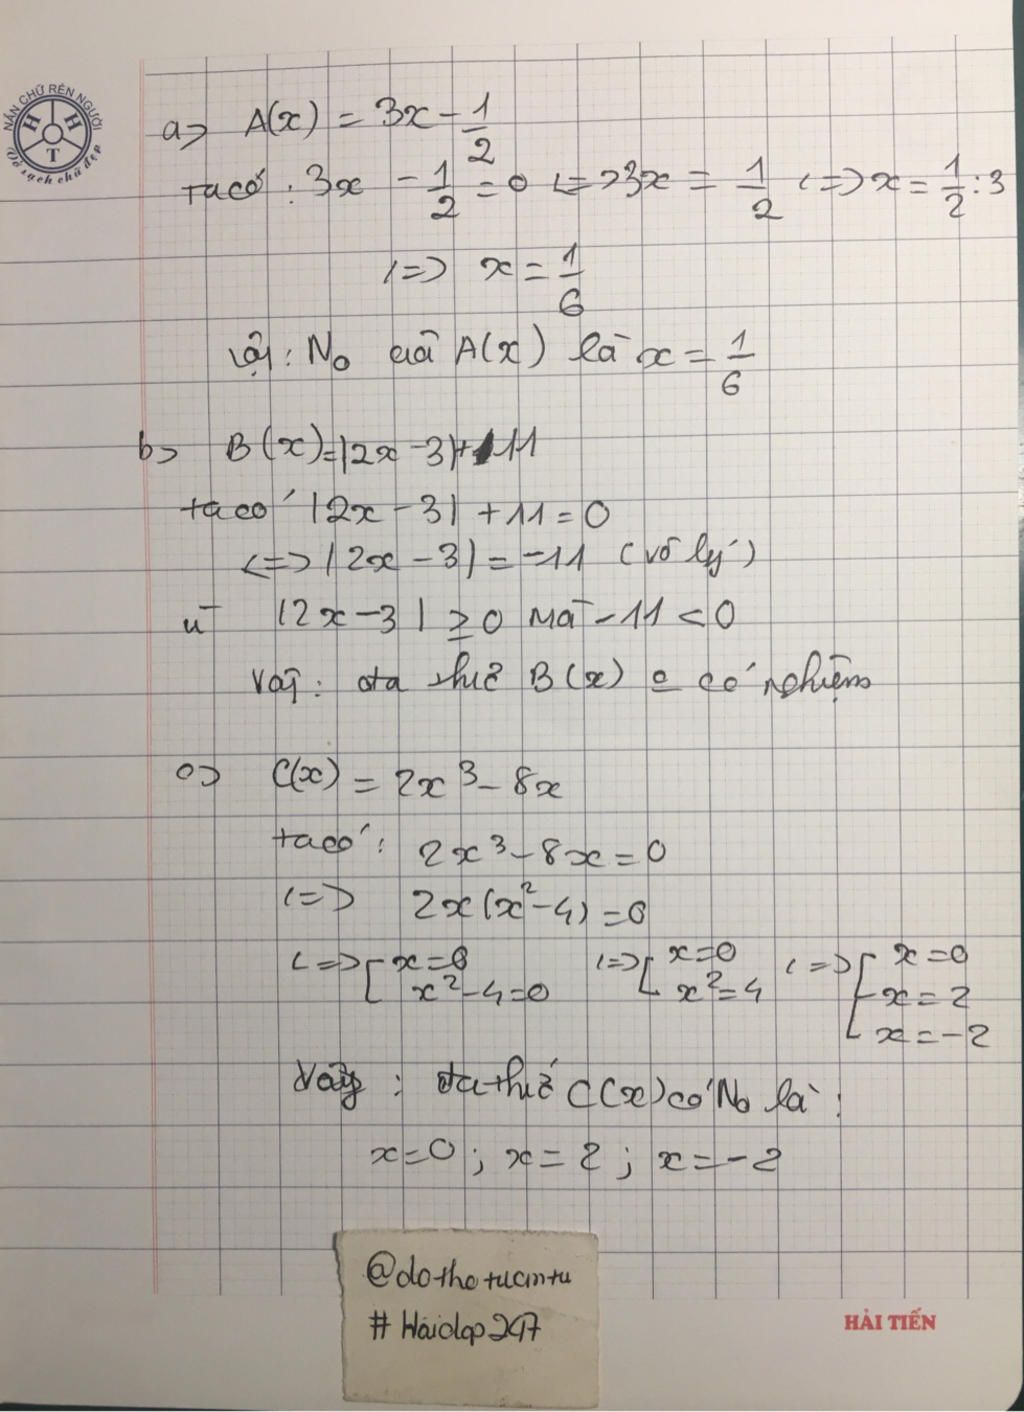 NẮN CHỮ RÈN NGƯỜI
H H T
Vở sạch chữ đẹp
a> A(x) = 3x - 1/2
ta có : 3x - 1/2 = 0 <=> 3x = 1/2 <=> x = 1/2 : 3
<=> x = 1/6
Vậy : No của A(x) là x = 1/6
b> B(x) = |2x - 3| + 11
ta có |2x - 3| + 11 = 0
<=> |2x - 3| = -11 (vô lý)
vì |2x - 3| ≥ 0 mà -11 < 0
Vậy : đa thức B(x) có nghiệm
c> C(x) = 2x³ - 8x
ta có : 2x³ - 8x = 0
<=> 2x(x² - 4) = 0
<=> [ x = 0 <=> [ x = 0 <=> [ x = 0
x² - 4 = 0 x² = 4 x = 2
x = -2
Vậy : đa thức C(x) có No là :
x = 0 ; x = 2 ; x = -2
@dothotuantu
# Hoidap247
HẢI TIẾN